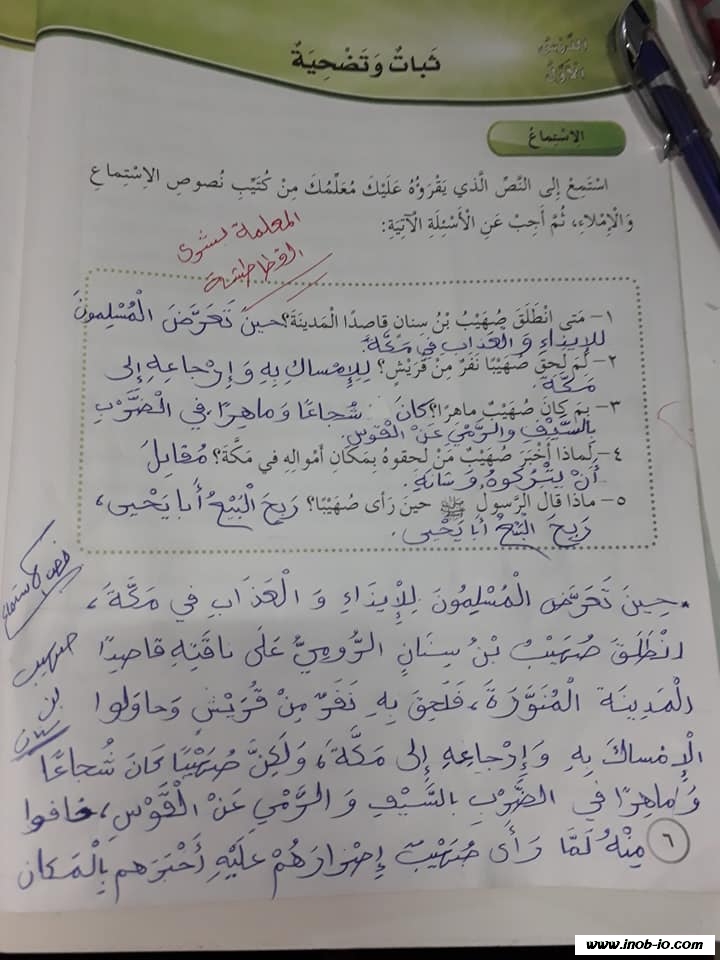 الدَّرْسُ
الْأَوَّلُ
ثَباتٌ وَتَضْحِيَةٌ
الِاسْتِماعُ
اسْتَمِعْ إِلى النَّصِّ الَّذي يَقْرَؤُهُ عَلَيْكَ مُعَلِّمُكَ مِنْ كُتَيِّبِ نُصوصِ الِاسْتِماعِ
وَالْإِمْلاءِ، ثُمَّ أَجِبْ عَنِ الْأَسْئِلَةِ الْآتِيَةِ:
المعلمة بشرى
١- مَتى انْطَلَقَ صُهَيْبُ بْنُ سِنانٍ قاصِدًا الْمَدينَةَ؟ حينَ تَعَرَّضَ الْمُسْلِمونَ
لِلإيذاءِ وَ الْعَذابِ في مَكَّةَ.
٢- لِمَ لَحِقَ صُهَيْبًا نَفَرٌ مِنْ قُرَيْشٍ؟ لِلإِمْساكِ بِهِ وَ إِرْجاعِهِ إِلى
مَكَّةَ.
٣- بِمَ كانَ صُهَيْبٌ ماهِرًا؟ كانَ شُجاعًا وَ ماهِرًا في الضَّرْبِ
بِالسَّيْفِ والرَّمْيِ عَنْ الْقَوْسِ.
٤- لِماذا أَخْبَرَ صُهَيْبٌ مَنْ لَحِقوهُ بِمَكانِ أَمْوالِهِ في مَكَّةَ؟ مُقابِلَ
أَنْ يَتْرُكوهُ وَ شَأْنَهُ.
٥- ماذا قالَ الرَّسولُ ﷺ حينَ رَأى صُهَيْبًا؟ رَبِحَ الْبَيْعُ أَبا يَحْيى،
رَبِحَ الْبَيْعُ أَبا يَحْيى.
نص الاستماع
صهيب
بن
سنان
• حِينَ تَعَرَّضَ الْمُسْلِمُونَ لِلْإِيذَاءِ وَ الْعَذَابِ فِي مَكَّةَ،
انْطَلَقَ صُهَيْبُ بْنُ سِنَانٍ الرُّومِيُّ عَلَى نَاقَتِهِ قاصِدًا
الْمَدِينَةَ الْمُنَوَّرَةَ، فَلَحِقَ بِهِ نَفَرٌ مِنْ قُرَيْشٍ وَحاوَلوا
الْإِمْساكَ بِهِ وَإِرْجاعِهِ إِلى مَكَّةَ، وَلَكِنَّ صُهَيْبًا كانَ شُجاعًا
وَ ماهِرًا في الضَّرْبِ بالسَّيْفِ وَ الرَّمْيِ عَنْ الْقَوْسِ، فخافوا
مِنْهُ لَمَّا رَأَى صُهَيْبٌ إِصْرارَهُمْ عَلَيْهِ أَخْبَرَهم بِالْمَكان
٦
www.inob-io.com